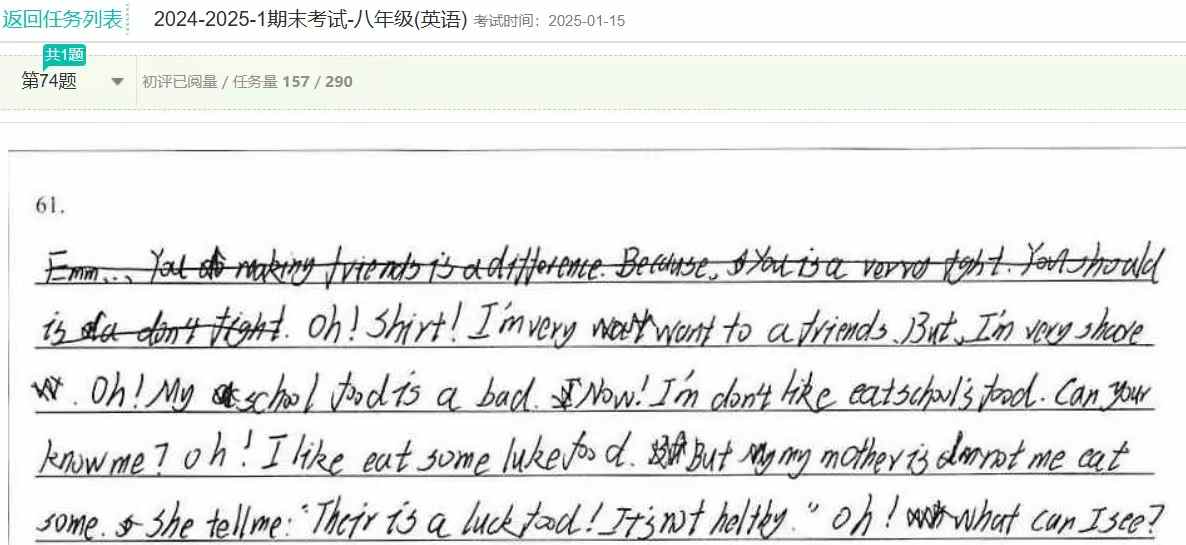 返回任务列表 2024-2025-1期末考试-八年级(英语) 考试时间：2025-01-15
共1题
第74题 初评已阅量 / 任务量 157 / 290
61.
Emm..., You making friends is a difference. Because, You is a very fght. You should
is a don't fight. Oh! Shirt! I'm very want to a friends. But, I'm very
. Oh! My school food is a bad. Now! I'm don't like eat school's food. Can your
know me? Oh! I like eat some luke food. But my mother is not me eat
some. She tell me: "Their is a luck food! It's not heltky." Oh! What can I see?